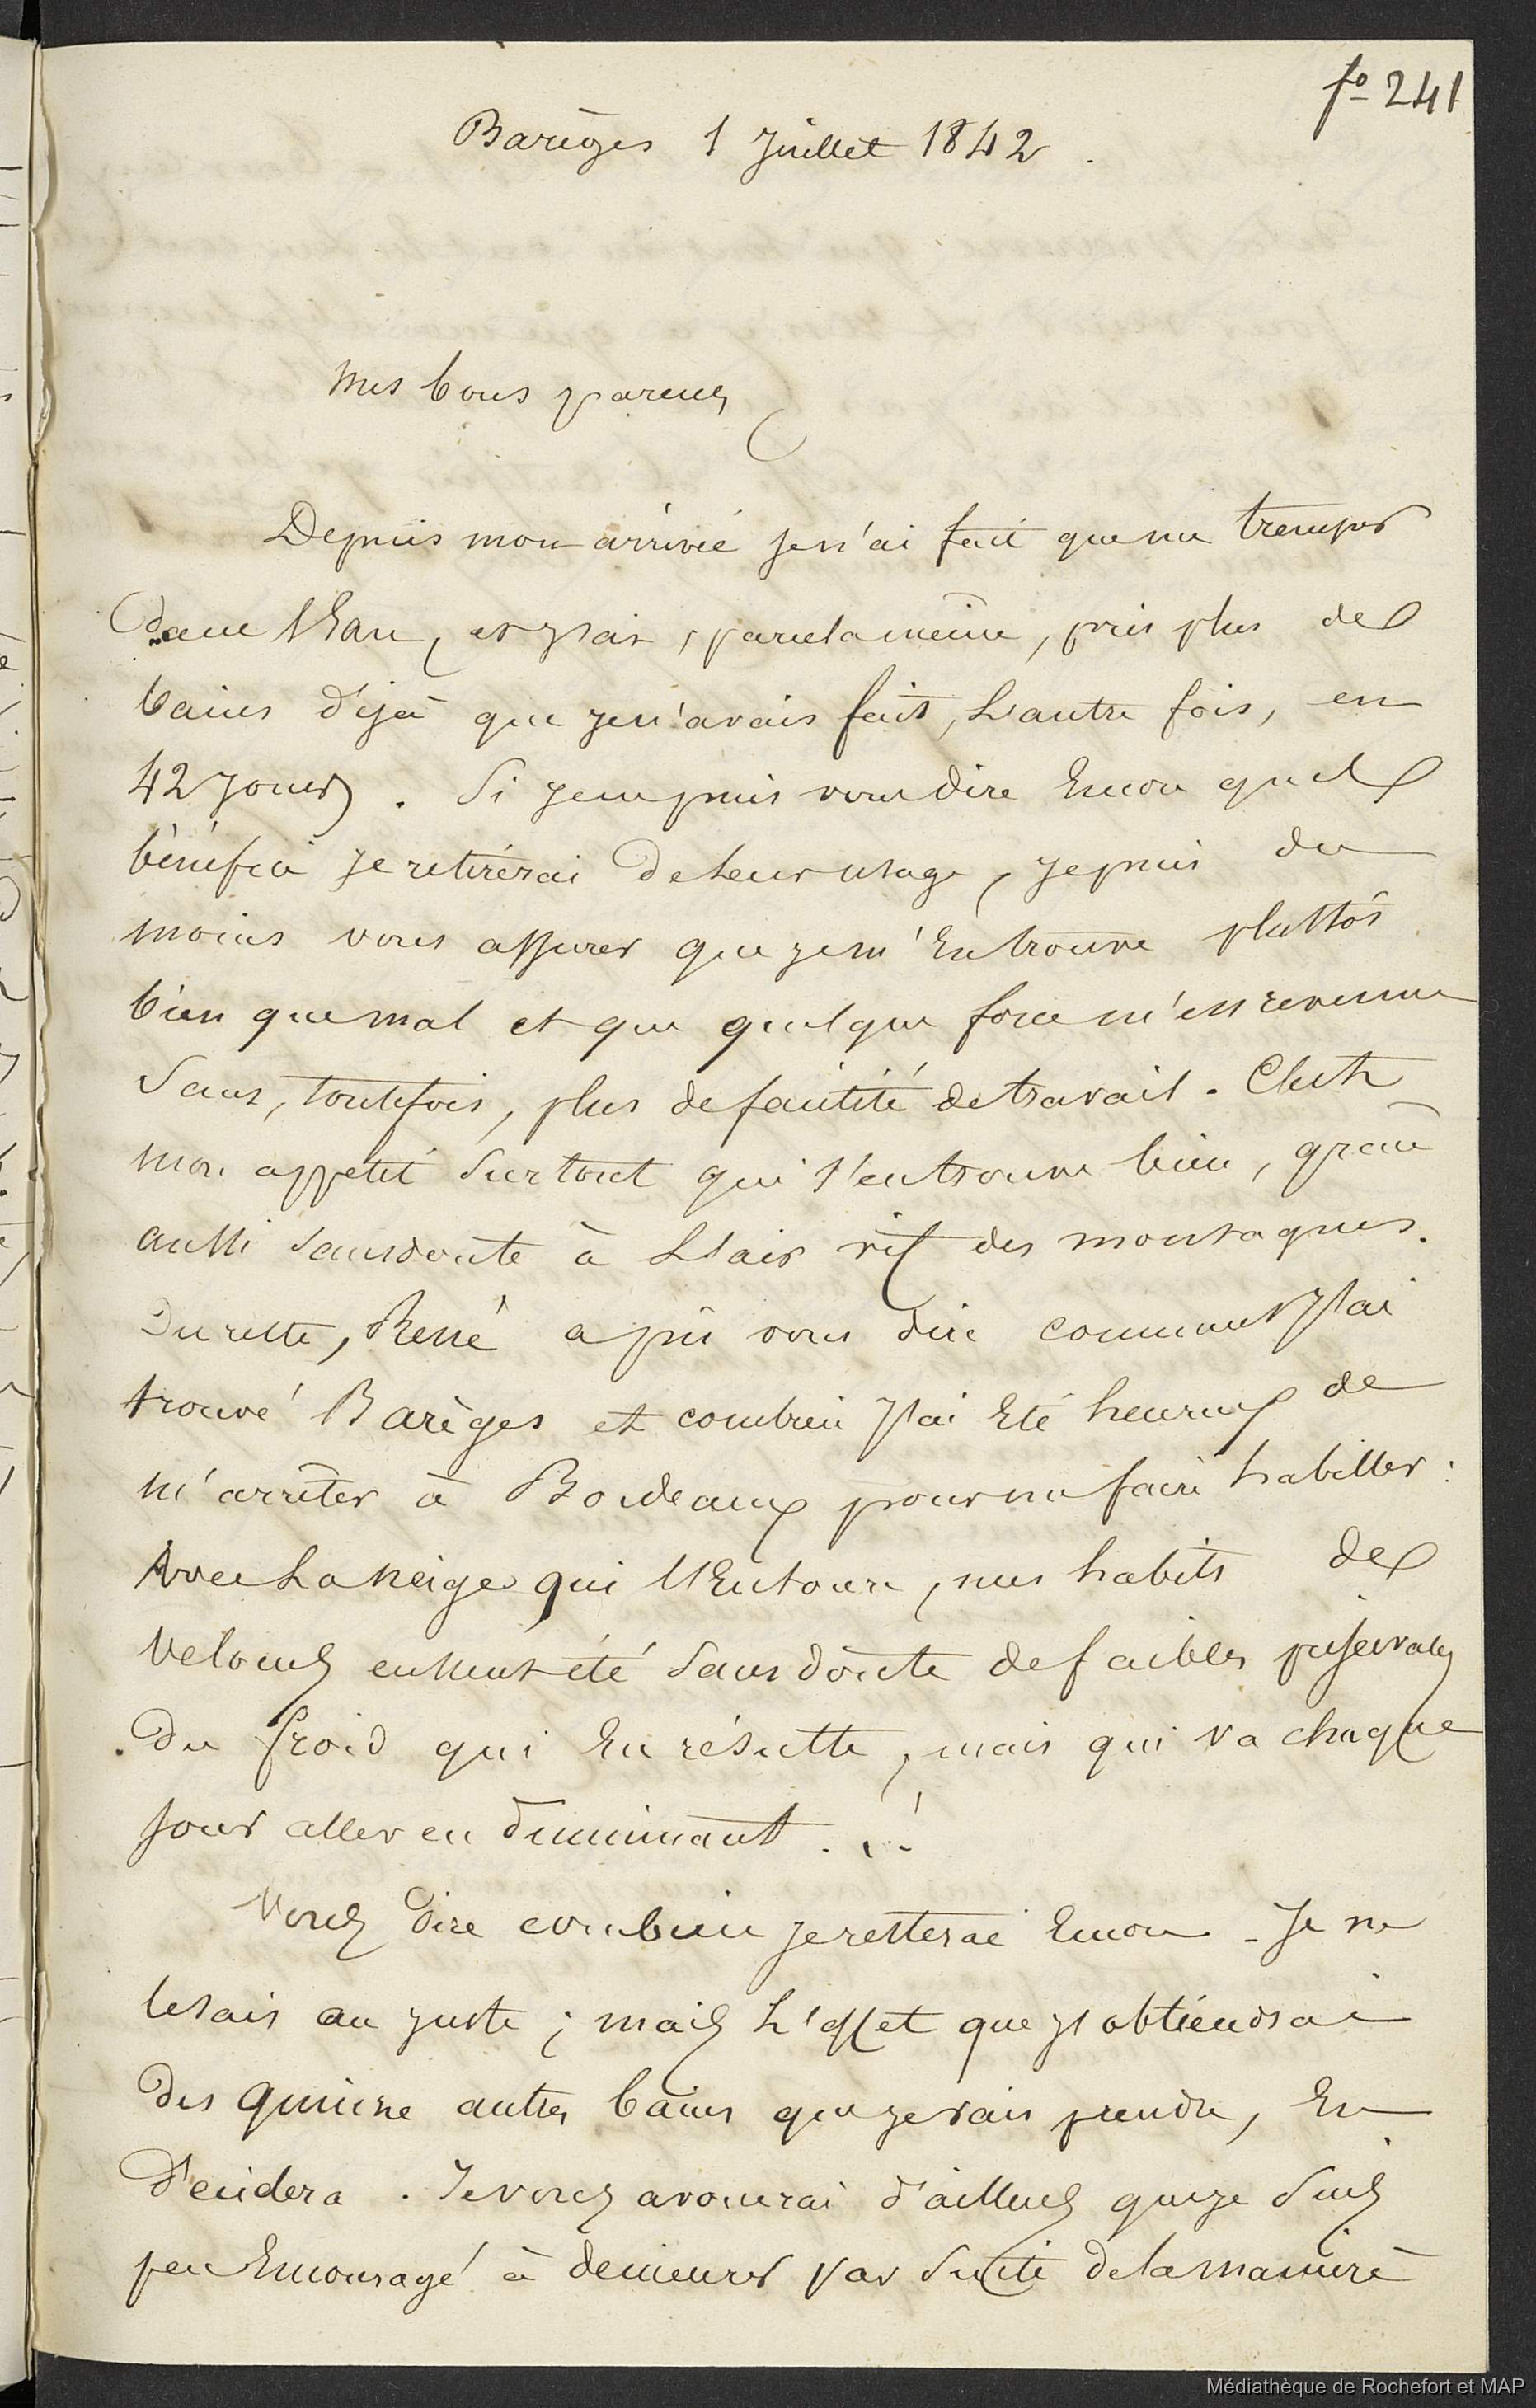 fo 241
Barèges 1 Juillet 1842.
Mes bons parens
Depuis mon arrivée je n'ai fait que me tremper
dans l'Eau, et j'ai, par cela même, pris plus de
bains déjà que je n'avais fait, L'autre fois, en
42 jours. Si je ne puis vous dire Encore quel
bénéfice je retirerai de Leur usage, je puis du
moins vous assurer que je m'En trouve plutôt
bien que mal et que quelque force m'est revenue
Sans, toutefois, plus de facilité de travail. C'est
mon appétit Surtout qui s'en trouve bien, grace
aussi Sans doute à L'air vif des montagnes.
Du reste, René a pu vous dire comment J'ai
trouvé Barèges et combien J'ai Eté heureux de
m'arrêter à Bordeaux pour me faire habiller:
Avec La Neige qui L'Entoure, mes habits de
Velours eussent été Sans doute de faibles préservatifs
du froid qui En résulte, mais qui va chaque
jour aller en diminuant...!
Vous dire combien je resterai Encore - Je ne
le sais au juste; mais L'effet que J'obtiendrai
des quinze autres bains que je vais prendre, En
décidera. Je vous avouerai d'ailleurs que je Suis
peu Encouragé à demeurer par Suite de la manière
Médiathèque de Rochefort et MAP